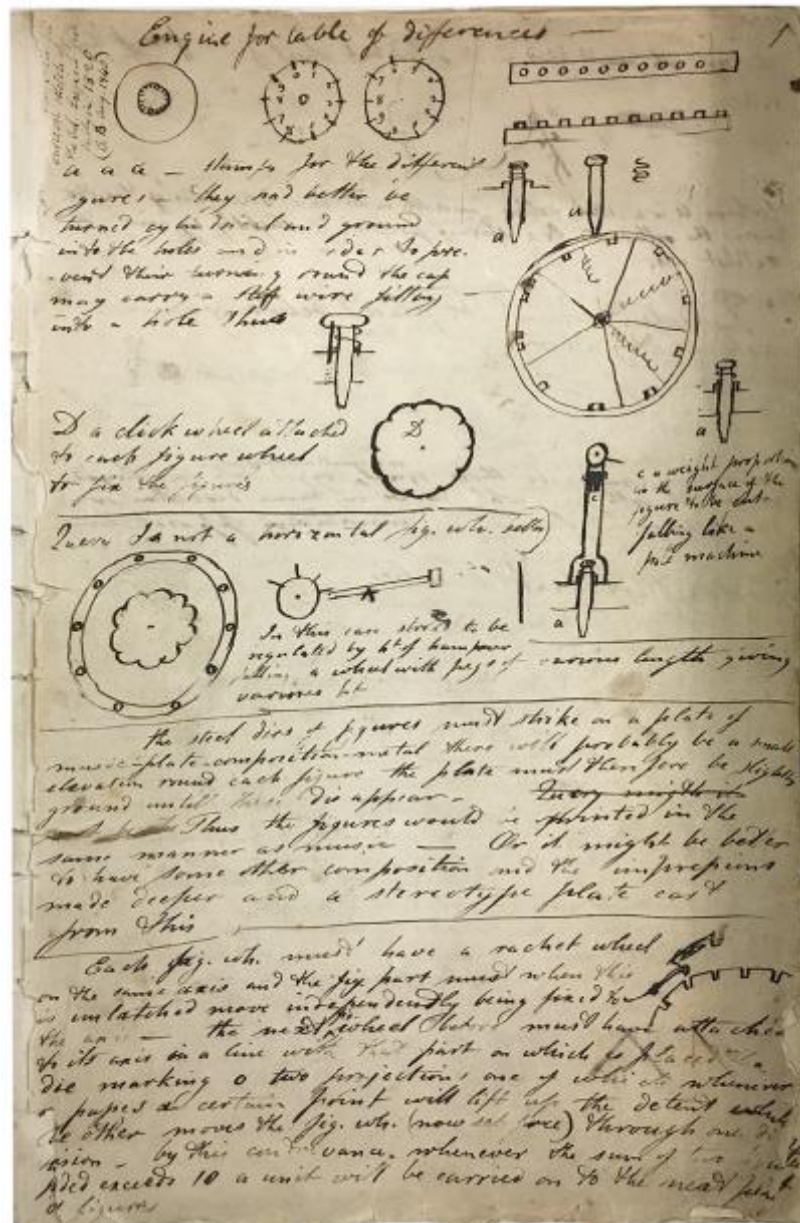 Engine for table of differences —
1
a a a — stamps for the different
figures — they had better be
turned cylindrical and ground
into the holes and in order to pre-
-vent their turning round the cap
may carry a stiff wire fitting
into a hole thus
a
a
a
D a click wheel attached
to each figure wheel
to fix the figures
D
c a weight proportion
to the surface of the
figure to be cut
falling like a
pile machine
c
a
Quere Is not a horizontal fig. wh. better
In this case stroke to be
regulated by ht of hammer
falling a wheel with pegs of various length giving
various ht
the steel dies of figures must strike on a plate of
music-plate-composition-metal there will probably be a small
elevation round each figure the plate must therefore be slightly
ground until these disappear —
Thus the figures would be printed in the
same manner as music — Or it might be better
to have some other composition and the impressions
made deeper and a stereotype plate cast
from this
Each fig. wh. must have a rachet wheel
on the same axis and the fig part must when this
is unlatched move independently being fixed to
the axis — the next fig wheel must have attached
to its axis in a line with that part on which is placed
die marking 0 two projections one of which whenever
passes a certain point will lift up the detent while
the other moves the fig. wh. (now set free) through one di
vision — by this contrivance whenever the sum of two
added exceeds 10 a unit will be carried on to the next
of figures